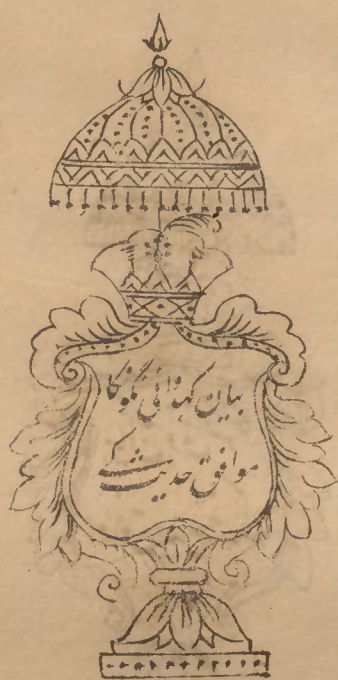 بیان کہدوائی نگونکا
موافق حدیث کے